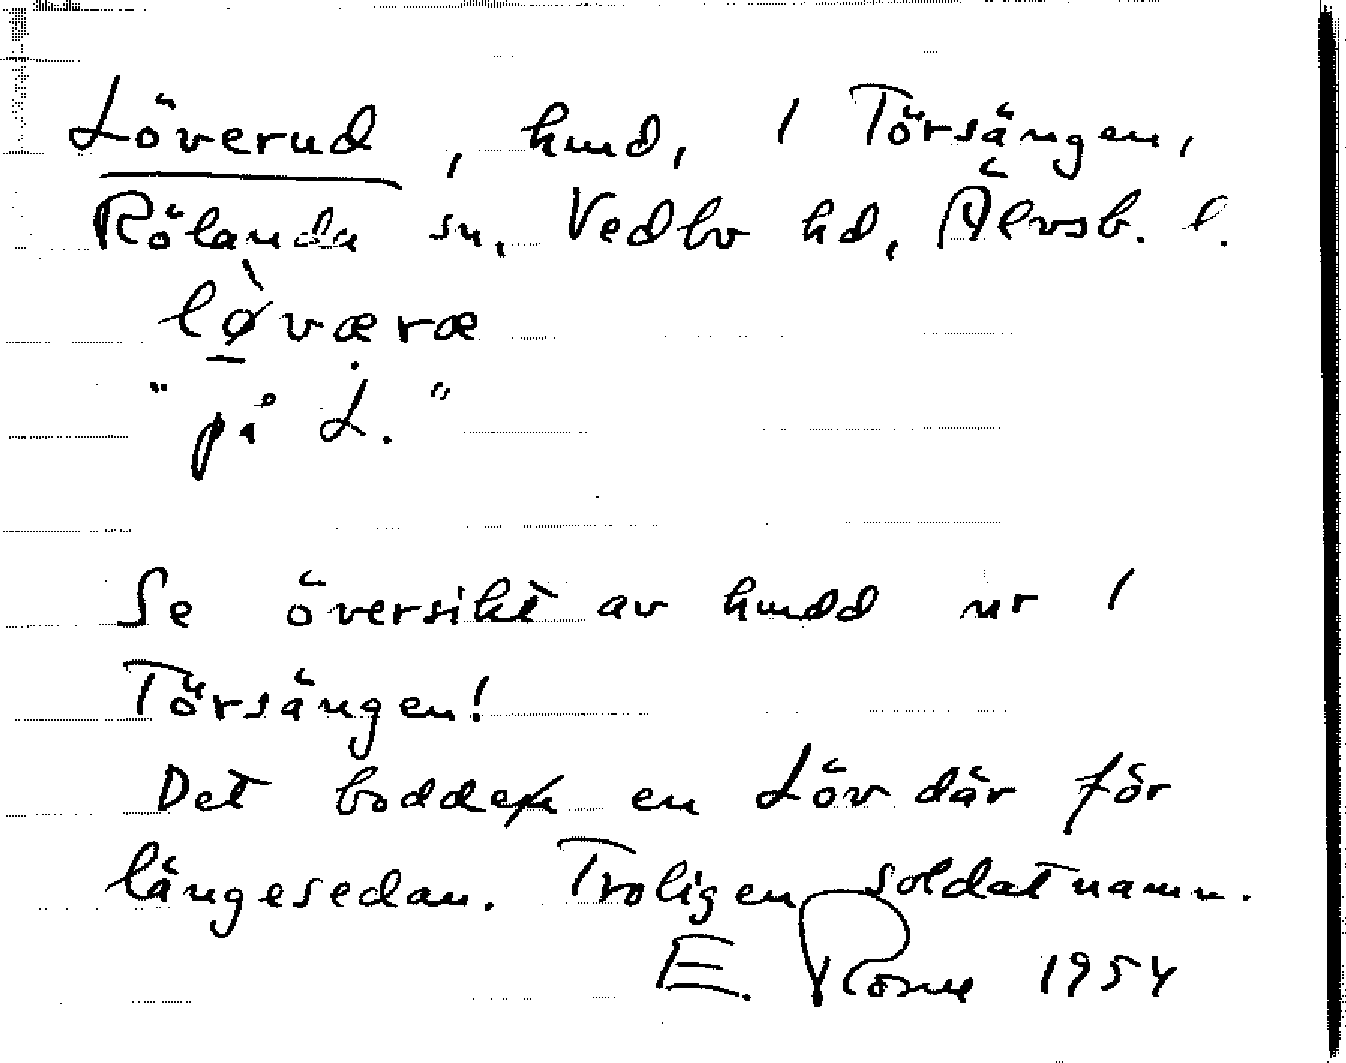 Löverud, hmd, 1 Törsängen,
Rölanda sn, Vedbo hd, Älvsb. l.
lø̱̀væræ
"på L."
Se översikt av hmdd nr 1
Törsängen!
Det bodde en Löv där för
längesedan. Troligen soldatnamn.
E. 1954